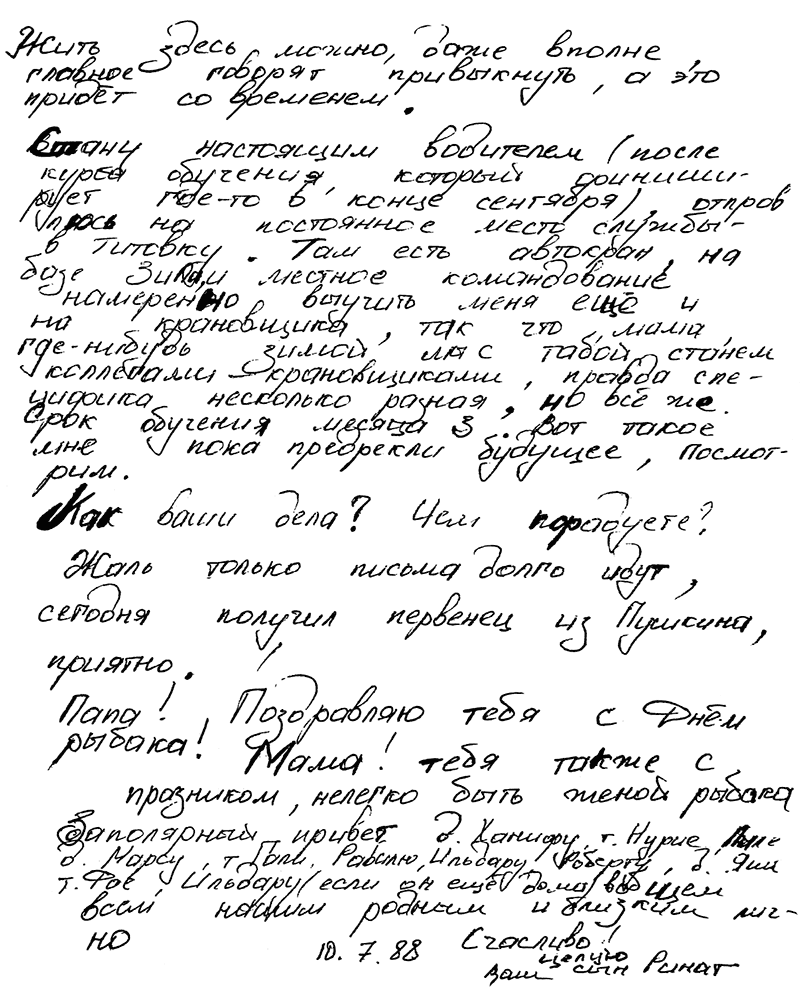 Жить здесь можно, даже вполне,
главное говорят привыкнуть, а это
придёт со временем.
Стану настоящим водителем (после
курса обучения, который финиши-
рует где-то в конце сентября), отправ
люсь на постоянное место службы -
в Титовку. Там есть автокран, на
базе ЗиЛа, и местное командование
намеренно выучить меня ещё и
на крановщика, так что, мама,
где-нибудь зимой мы с табой станем
коллегами - крановщиками, правда спе-
цифика несколько разная, но всё же.
Срок обучения месяца 3. Вот такое
мне пока предрекли будущее, посмот-
рим.
Как ваши дела? Чем порадуете?
Жаль только письма долго идут,
сегодня получил первенец из Пушкина,
приятно!
Папа! Поздравляю тебя с Днём
рыбака! Мама! тебя также с
празником, нелегко быть женой рыбака
Заполярный привет д. Ханифу, т. Нурие,
д. Марсу, т. Гале, Равилю, Ильдару, Роберту, д. Яши
т. Фае, Ильдару (если он ещё дома) вобщем
всем нашим родным и близким лич-
но
10.7.88 Счасливо!
целую
ваш сын Ринат